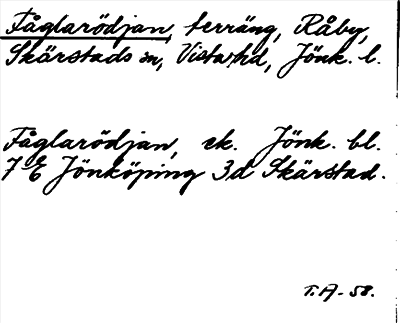 Fåglarödjan, terräng, Råby,
Skärstads sn, Vista hd, Jönk. l.
Fåglarödjan, ek. Jönk. bl.
7E Jönköping 3d Skärstad.
T.A - 58.